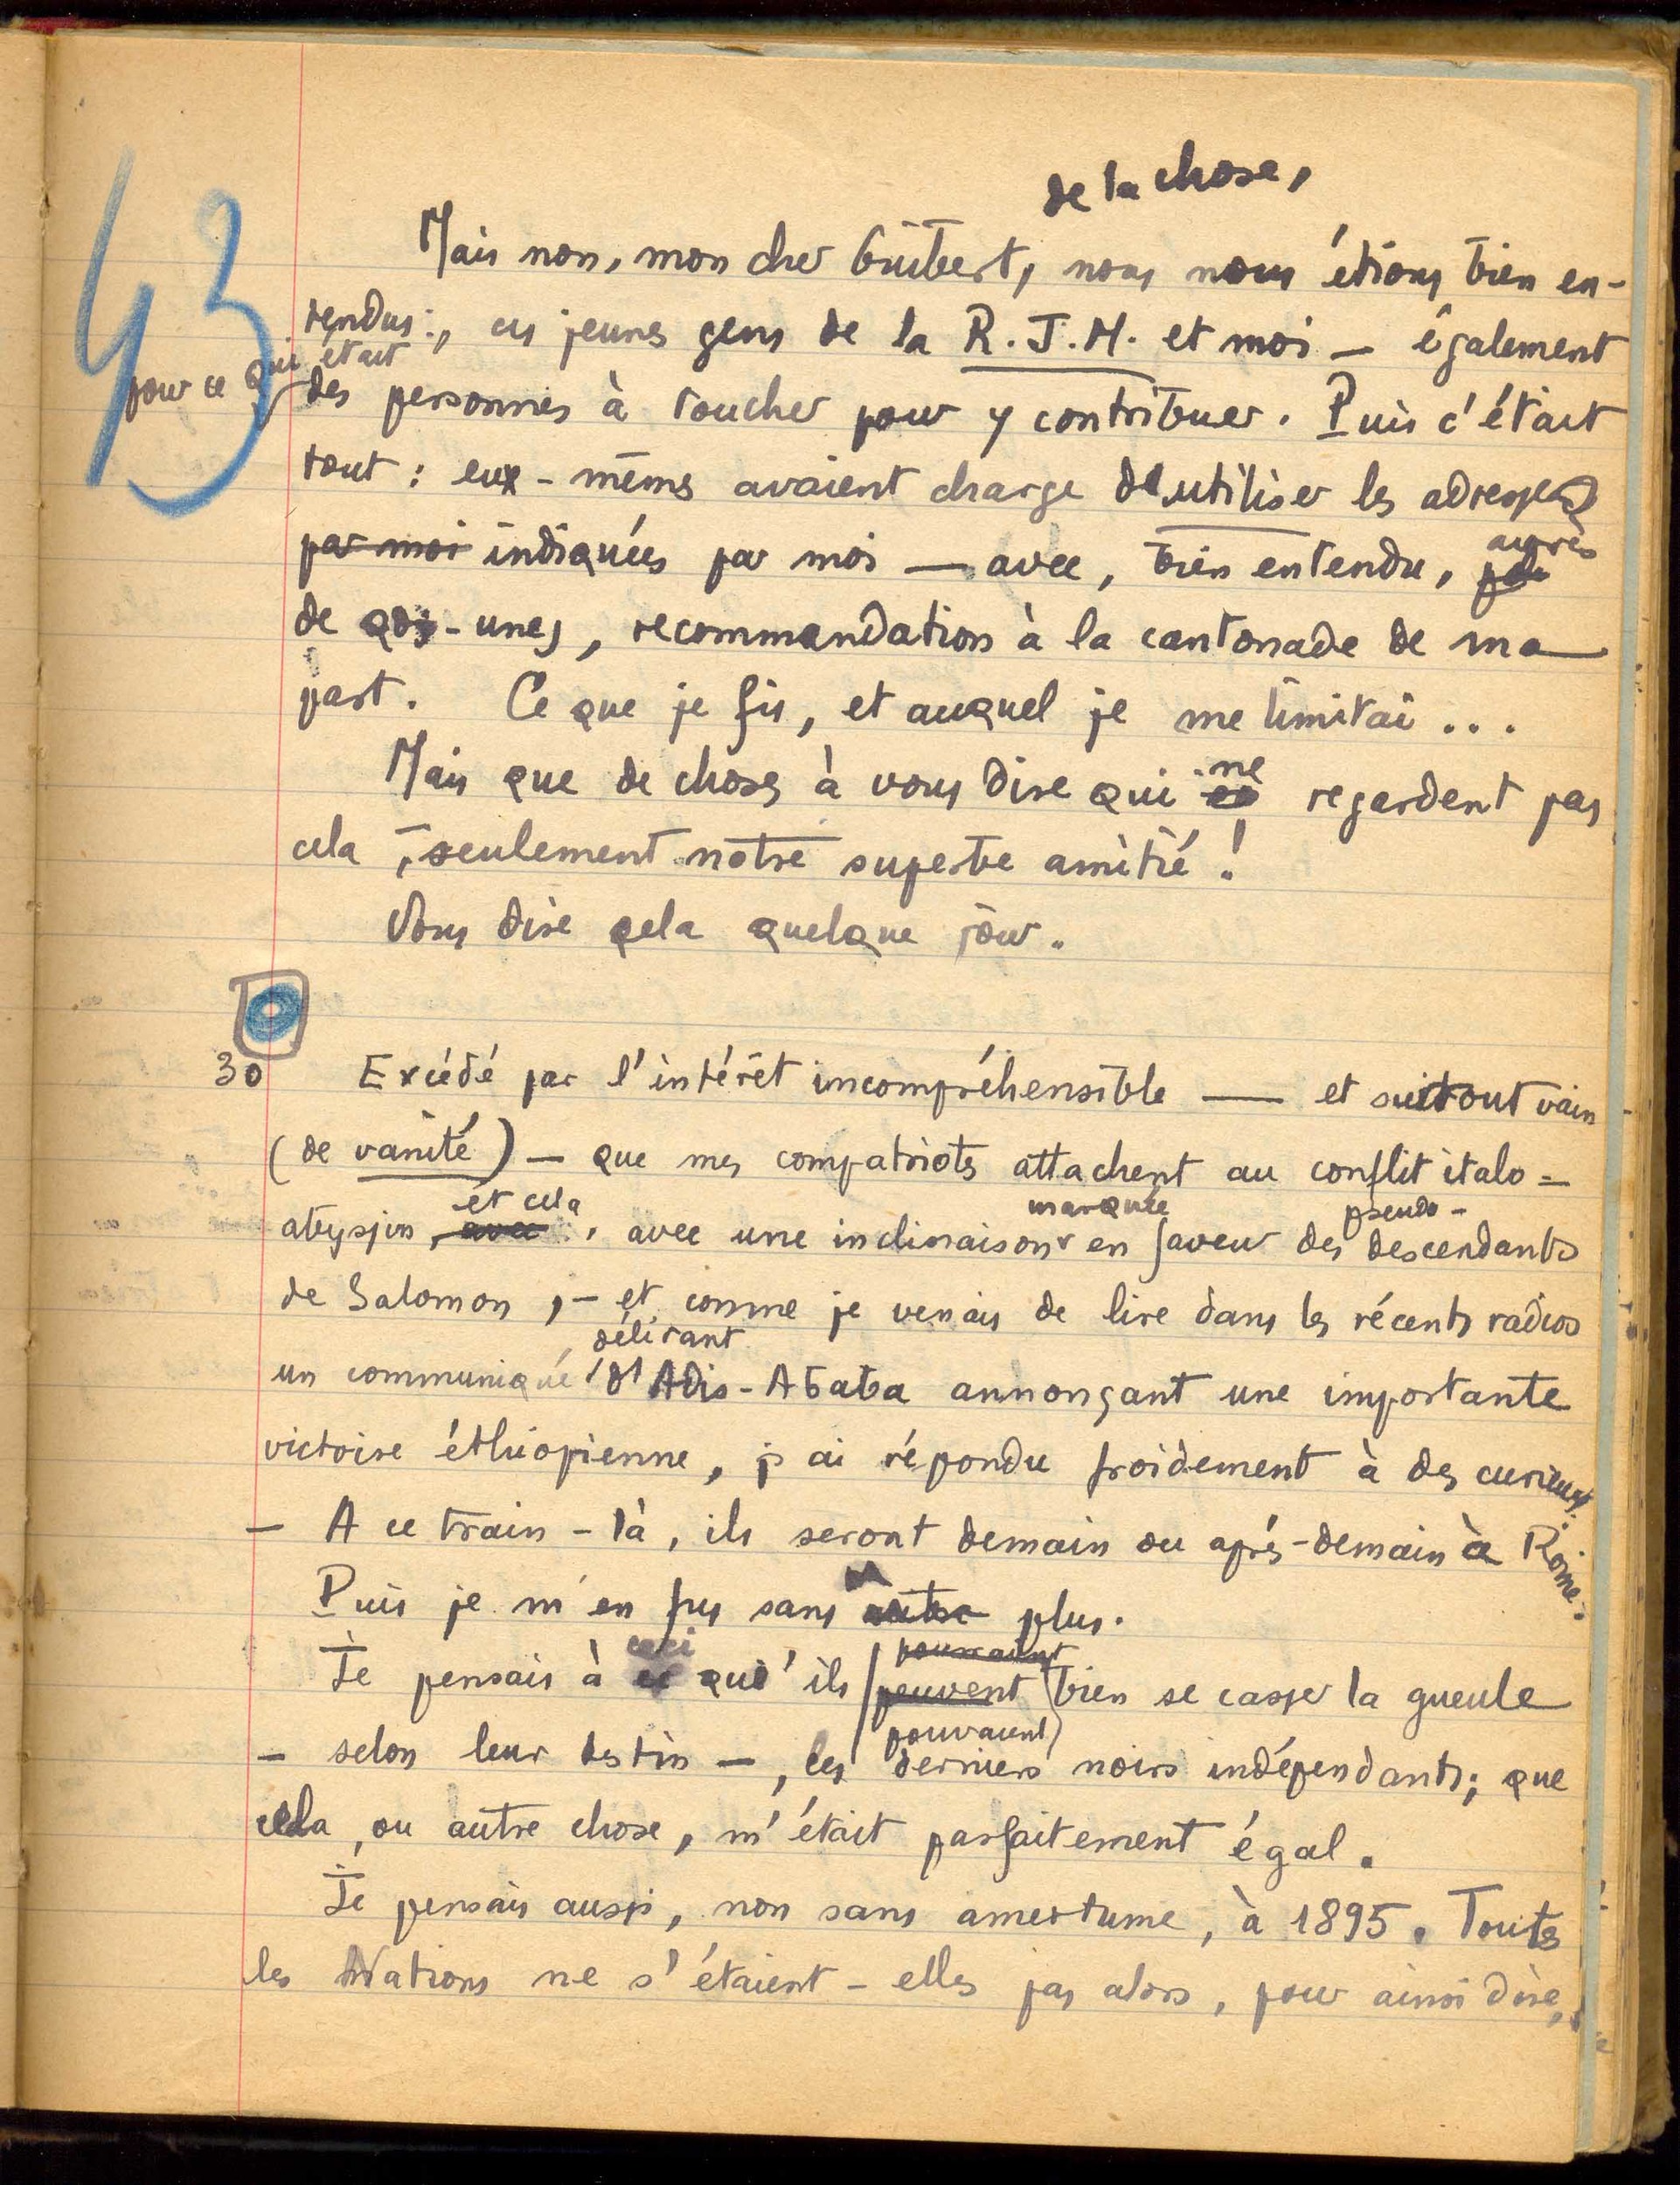 43
de la chose,
Mais non, mon cher Guibert, nous nous étions bien en-
tendus, ces jeunes gens de la R. J. M. et moi — également
pour ce qui était
des personnes à toucher pour y contribuer. Puis c'était
tout : eux-mêmes avaient charge de utiliser les adresses
par moi indiquées par moi — avec, bien entendu,
auprès
de qqs-unes, recommandation à la cantonade de ma
part. Ce que je fis, et auquel je me limitai ...
ne
Mais que de choses à vous dire qui regardent pas
cela, seulement notre superbe amitié !
Vous dire cela quelque jour.
30 Excédé par l'intérêt incompréhensible — et surtout vain
(de vanité) — que mes compatriotes attachent au conflit italo-
et cela marquée pseudo-
abyssin, avec, avec une inclinaison en faveur des descendants
de Salomon, — et comme je venais de lire dans les récents radios
délirant
un communiqué d'Adis-Ababa annonçant une importante
victoire éthiopienne, j'ai répondu froidement à des curieux :
— A ce train-là, ils seront demain ou après-demain à Rome.
Puis je m'en fus sans autre plus.
ceci pourraient
Je pensais à ce qu'ils peuvent bien se casser la gueule
pouvaient
— selon leur destin —, les derniers noirs indépendants ; que
cela, ou autre chose, m'était parfaitement égal.
Je pensais aussi, non sans amertume, à 1895. Toutes
les Nations ne s'étaient-elles pas alors, pour ainsi dire,